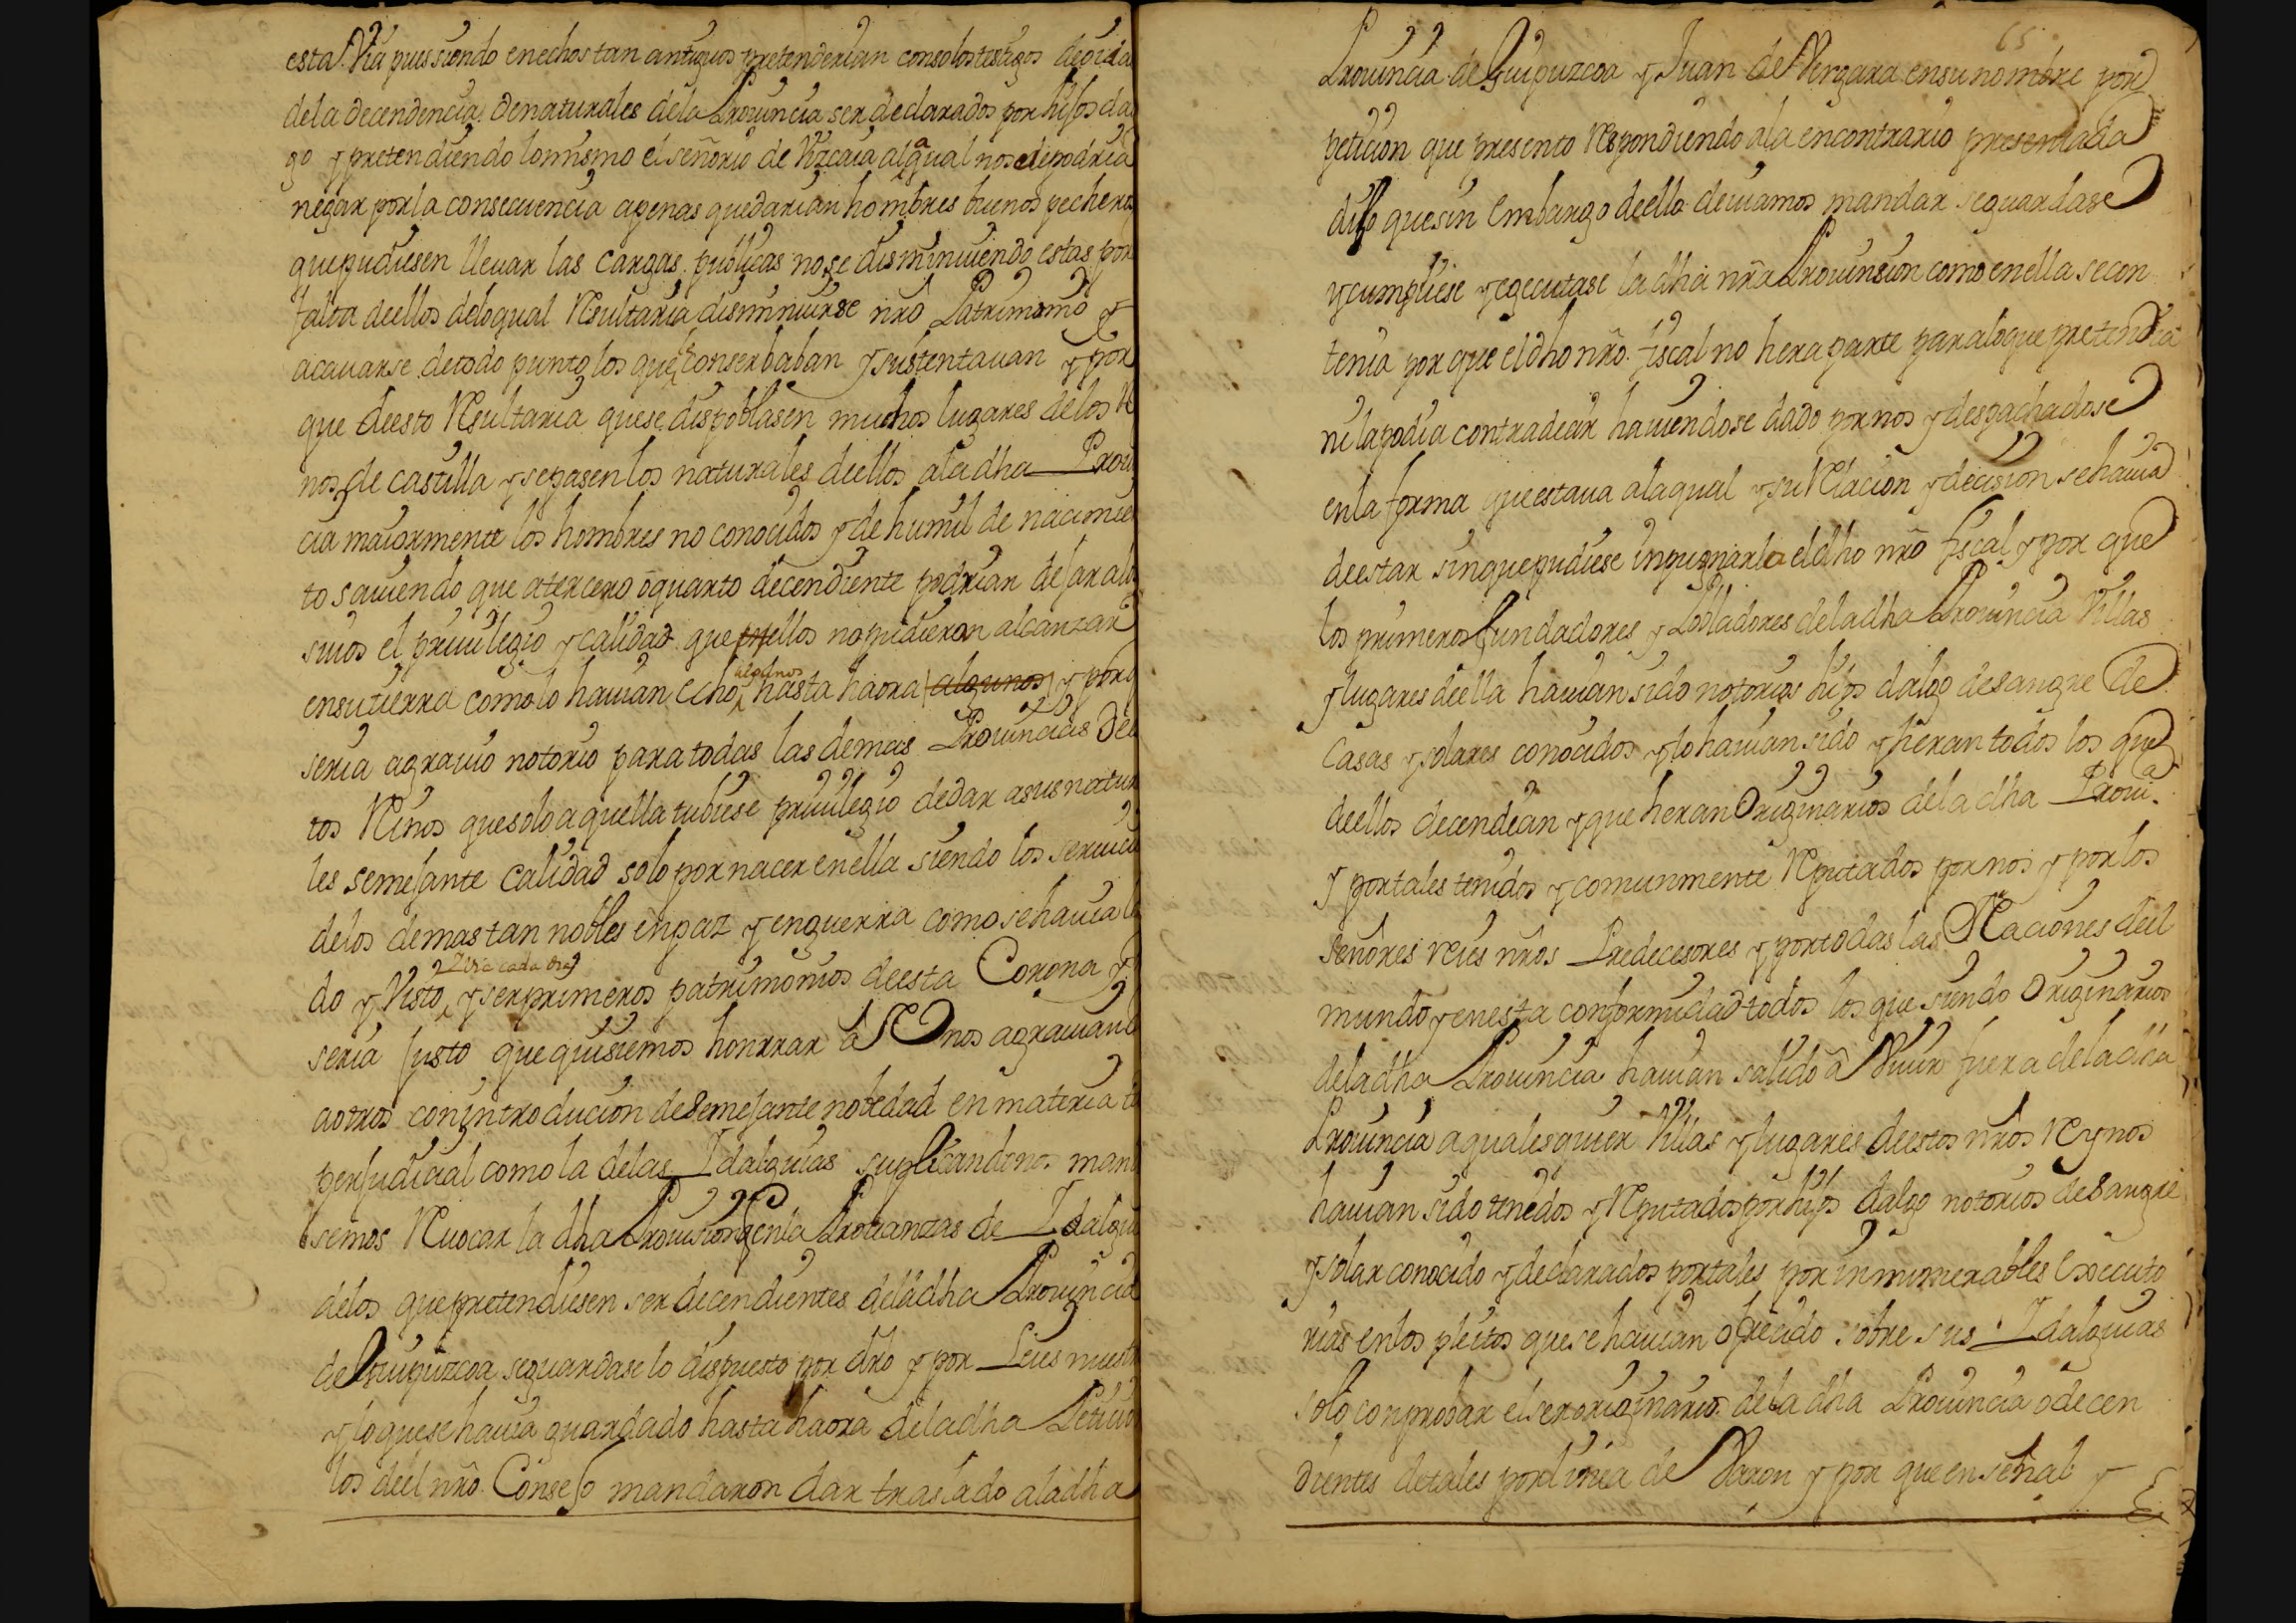 esta Via pues siendo en echos tan antiguos pretenderian con solos testigos de oida
de la decendencia de naturales de la Prouincia ser declarados por hijos da
go y pretendiendo lo mismo el señorio de Vizcaia al qual no se le podria
negar por la consecuencia apenas quedarian hombres buenos pecheros
que pudiesen lleuar las cargas publicas no se disminuiendo estas por
falta de ellos de lo qual Resultaria disminuirse nrõ Patrimonio y
acauarse de todo punto los que conserbaban y sustentauan y por
que de esto Resultaria que se dispoblasen muchos lugares de los Re
nos de castilla y se pasen los naturales de ellos a la dha Prouin
cia maiormente los hombres no conocidos y de humilde nacimien
to sauiendo que a tercero o quarto decendiente podrian dejar a los
suios el priuilegio y calidad que ellos no pudieron alcanzar
en su tierra como lo hauian echo algunos hasta haora algunos y porq
seria agrauio notorio para todas las demas Prouincias de es
tos Reinos que solo aquella tubiese priuilegio de dar a sus natura
les semejante calidad solo por nacer en ella siendo los seruicios
de los demas tan nobles en paz y en guerra como se hauia
do y Visto, y Via cada dia y ser primeros patrimonios de esta Corona y
seria justo que quisiemos honrrar a Vnos agrauiando
a otros con introducion de semejante nobedad en materia
perjudicial como la de las Idalguias suplicandonos man
semos Reuocar la dha Prouision y en la Prouanzas de Idalguia
de los que pretendiesen ser decendientes de la dha Prouincia
de Guipuzcoa se guardase lo dispuesto por dro y por Leies nuestras
y lo que se hauia guardado hasta haora de la dha Peticion
los del nrõ Consejo mandaron dar traslado a la dha
65
Prouincia de Guipuzcoa y Juan de Vergara en su nombre por
peticion que presento Respondiendo a la en contrario presentada
dijo que sin embargo de ello deuiamos mandar se guardase
y cumpliese y egecutase la dha nrã Prouinsion como en ella se con
tenia por que el dho nrõ fiscal no hera parte para lo que pretendia
ni la podia contradecir hauiendose dado por nos y despachadose
en la forma que estaua a la qual y su Relacion y decision se hauia
de estar sin que pudiese inpugnarla el dho nrõ fiscal y por que
los primeros fundadores y Pobladores de la dha Prouincia Villas
y lugares de ella hauian sido notorios hijos dalgo de sangre de
Casas y solares conocidos y lo hauian sido y heran todos los que
de ellos decendian y que heran Originarios de la dha Proui.ᵃ
y por tales tenidos y comunmente Reputados por nos y por los
señores reies nrõs Predecesores y por todas las Naciones del
mundo y en esta conformidad todos los que siendo Originarios
de la dha Prouincia hauian salido â Viuir fuera de la dha
Prouincia a qualesquier Villas y lugares de estos nrõs Reynos
hauian sido tenidos y Reputados por hijos dalgo notorios de sangre
y solar conocido y declarados por tales por inmumerables Executo
rias en los pleitos que se hauian ofrecido sobre sus Idalguias
solo con probar el ser originarios de la dha Prouincia o decen
dientes de tales por linea de Varon y por que en señal y